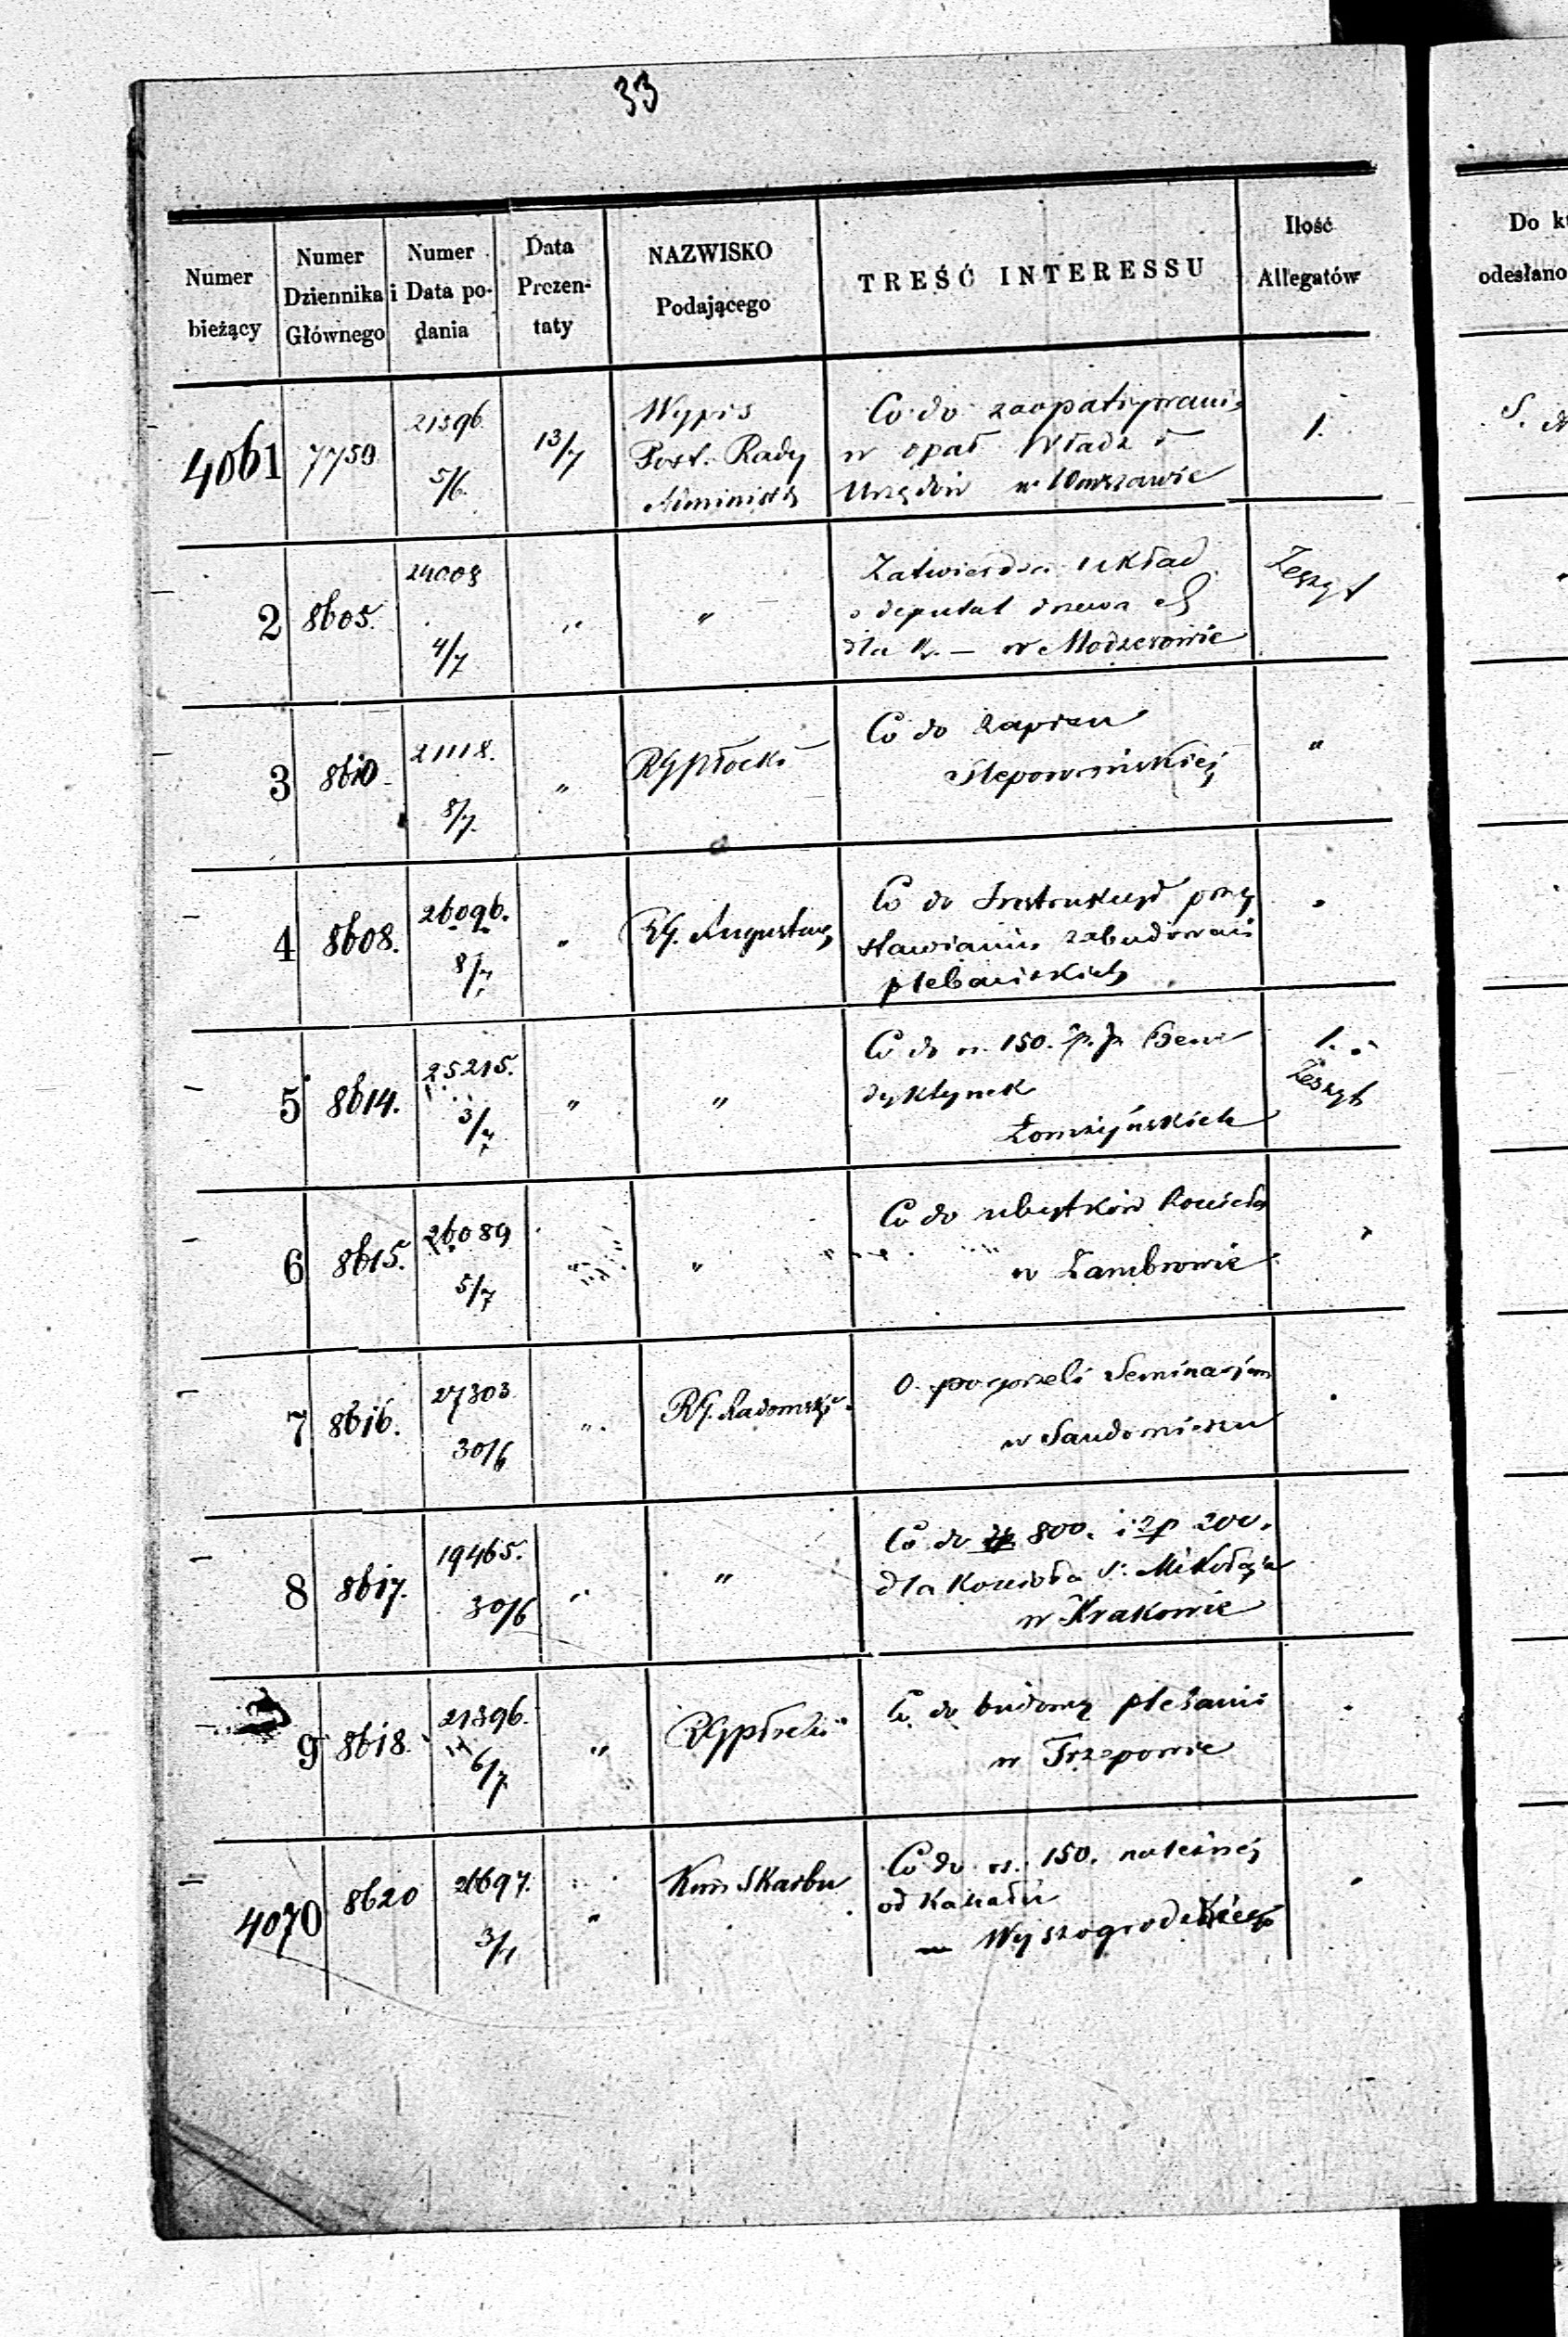 33
Numer bieżący
Numer Dziennika Głównego
Numer i Data podania
Data Prezentaty
NAZWISKO Podającego
TREŚĆ INTERESSU
Ilość Allegatów
Do
odesłano
4061 7759 21396 5/6. 13/7 Wypis Co do 1.
Post. Rady w opał Władz i
Urzędów w Warszawie
2 8605. 24008 4/7 " " układ Zeszyt
o deputat drzewa
dla — w Modzerowie
3 8610 21118. 8/7. " RG Płocki Co do "
4 8608. 26096. 8/7. " RG. August Co do przy
stawianiu zabudowań
plebańskich
5 8614. 25215. 3/7 " " Co do 150. Bene 1.
dyktynek Zeszyt
Łomżyńskich
6 8615. 26089 5/7 " " Co do ubytków
w Zambrowie
7 8616. 27303 30/6 " RG. Radomski O pogorzeli Seminarium
w Sandomierzu
8 8617. 19465. 30/6 " " Co do 800. i zp 200.
dla Kościoła S. Mikołaja
w Krakowie
9 8618. 21396. 6/7. " RG Płocki Co do budowy plebanii
w Trzepowie
4070 8620 3/7 " Kom Skarbu Co do rs. 150. należnej
od Kahału
Wyszogrodzkiego